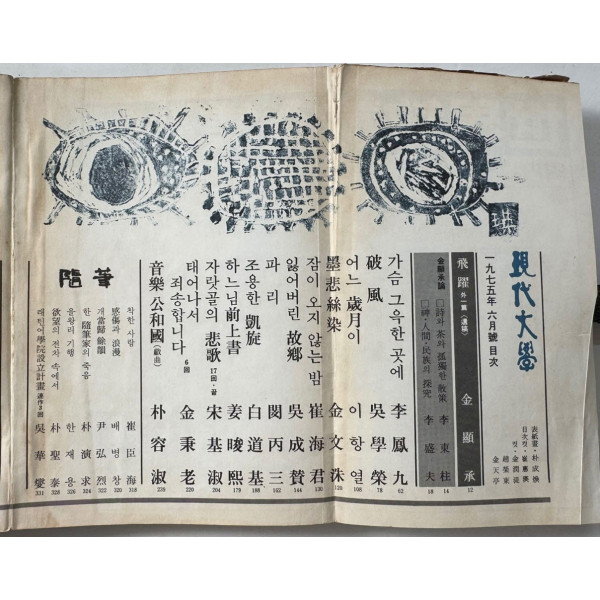 現代文學
一九七五年 六月號 目次
表紙畵・朴成煥
目次컷・崔惠興
컷・金潤混
趙榮東
金天亭
飛躍 外一篇〈遺稿〉 金顯承 12
金顯承論
□詩와 茶와 孤獨한 散策 李東柱 14
□神・人間・民族의 探究 李盛夫 18
가슴 그윽한 곳에 李鳳九 62
破風 吳學榮 78
어느 歲月이 이항열 108
墨悲絲染 金文洙 120
잠이 오지 않는 밤 崔海君 130
잃어버린 故鄕 吳成贊 144
파리 閔丙三
조용한 凱旋 白道基 168
하느님前上書 姜晙熙 179
자랏골의 悲歌 17回・끝 宋基淑 204
태어나서 죄송합니다 6回 金秉老 220
音樂公和國〈戱曲〉 朴容淑 239
隨筆
착한 사람 崔臣海 318
感傷과 浪漫 배병창 320
개當歸 餘韻 尹弘烈 322
한 隨筆家의 죽음 朴演求 324
을왕리 기행 한재용 326
欲望의 전차 속에서 朴聖泰 328
래틴어學院設立計畫 連作3回 吳華燮 331